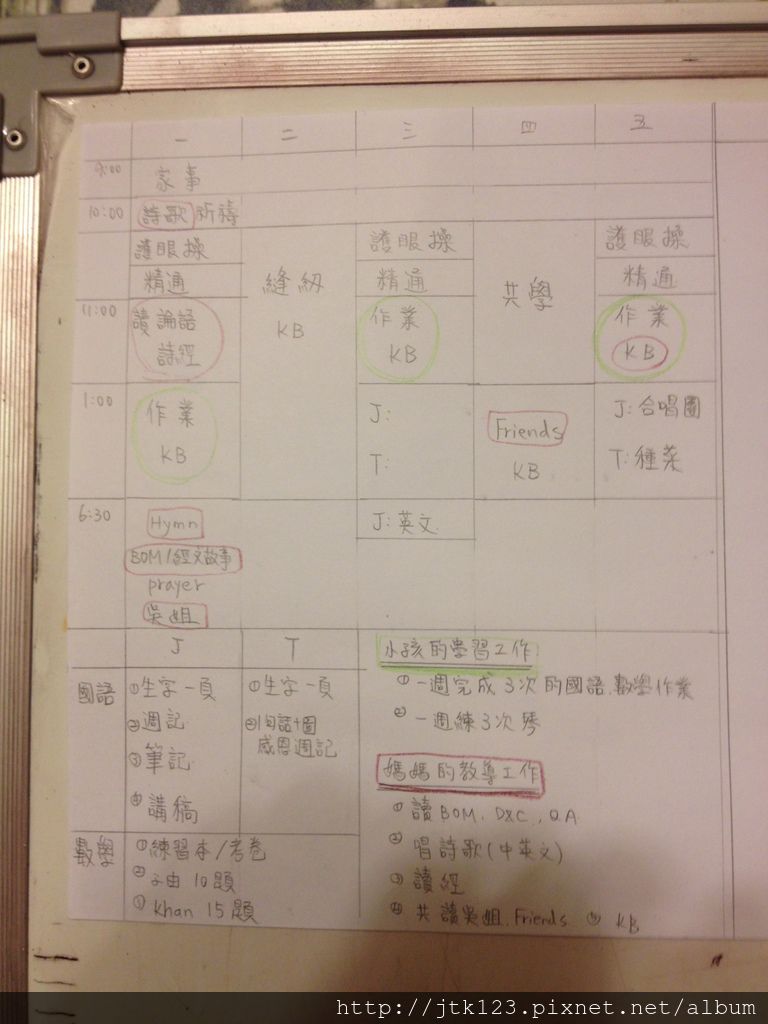 一 二 三 四 五
9:00 家事
10:00 詩歌 祈禱
護眼操 護眼操 護眼操
精通 縫紉 精通 共學 精通
11:00 讀論語 作業 作業
詩經 KB KB KB
1:00 作業 J: Friends J:合唱團
KB T: KB T:種菜
6:30 Hymn J:英文
BOM/經文故事
prayer
吳姐
J T
國語 ①生字一頁 ①生字一頁
②週記 ②1句話+圖
感恩週記
③筆記
④講稿
數學 ①練習本/考卷
② 10題
③Khan 15題
小孩的學習工作
①一週完成3次的國語.數學作業
②一週練3次琴
媽媽的教導工作
①讀BOM. D&C., QA
②唱詩歌(中英文)
③讀經
④共讀吳姐.Friends ⑤ KB
http://jtk123.pixnet.net/album